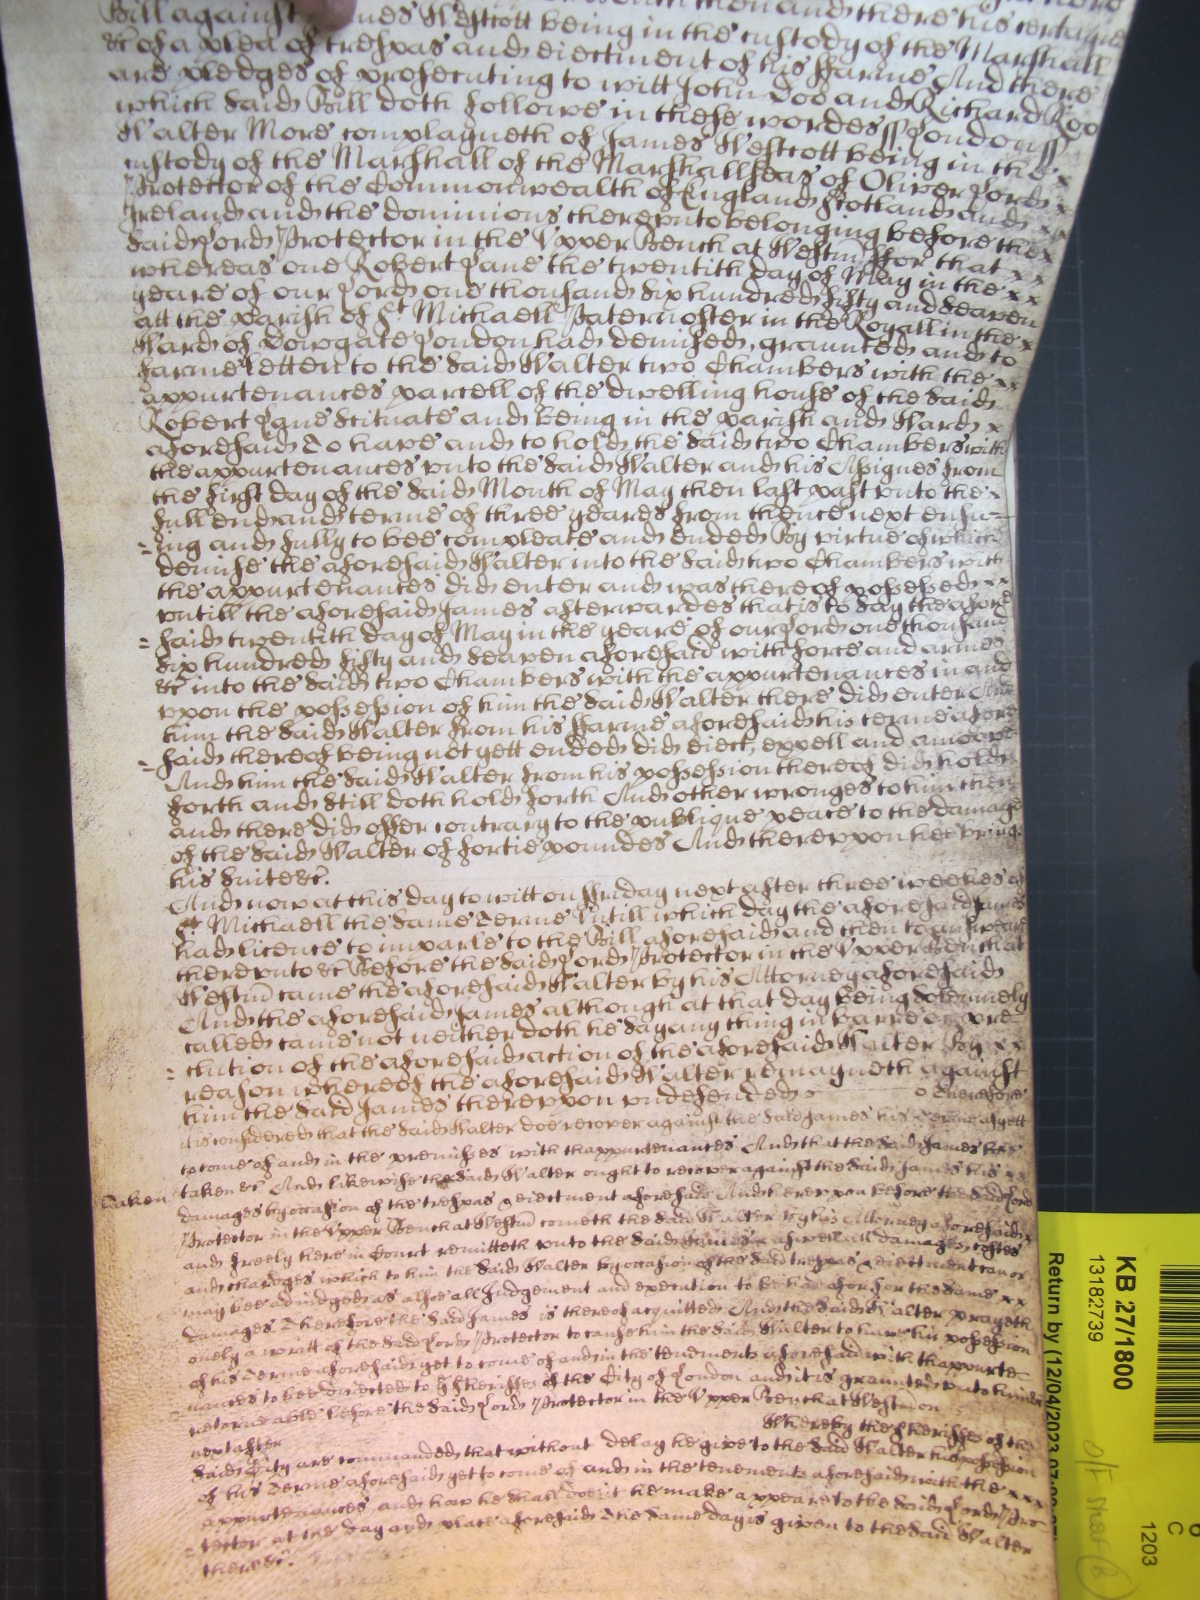 Bill against James Westcott being in the custody of the Marshall
&c of a plea of trespas and eiectment of his Farme And there
are pledges of prosecuting to witt John Doo and Richard Roo
which said Bill doth followe in these wordes ss London ss
Walter More complayneth of James Westcott being in the
custody of the Marshall of the Marshallseas of Oliver Lord
Protector of the Commonwealth of England Scotland and
Ireland and the dominions thereunto belonging before the
said Lord Protector in the Upper Bench at Westm̄ For that
whereas one Robert Lane the twentith day of May in the
yeare of our Lord one thousand six hundred fifty and seaven
att the parish of St Michaell Paternoster in the Royall in the
Ward of Dowgate London had demised, graunted and to
farme letten to the said Walter two Chambers with the
appurtenances parcell of the dwelling house of the said
Robert Lane scituate and being in the parish and Ward
aforesaid To have and to hold the said two Chambers with
the appurtenances vnto the said Walter and his Assignes from
the first day of the said Month of May then last past vnto the
full end and terme of three yeares from thence next ensu-
=ing and fully to bee compleate and ended By virtue of which
demise the aforesaid Walter into the said two Chambers with
the appurtenances did enter and was thereof possessed
vntill the aforesaid James afterwardes that is to say the afore
=said twentith day of May in the yeare of our Lord one thousand
six hundred fifty and seaven aforesaid with force and armes
&c into the said two Chambers with the appurtenances in and
vpon the possession of him the said Walter there did enter And
him the said Walter from his Farme aforesaid his terme afore
=said thereof being not yett ended did eiect, expell and amoove
And him the said Walter from his possession thereof did hold
forth and still doth hold forth And other wronges to him then
and there did offer contrary to the publique peace to the damage
of the said Walter of fortie poundes And therevpon hee bring
his suite &c.
And now at this day to witt on Friday next after three weekes of
St Michaell the same Terme Vntill which day the aforesaid James
had licence to imparle to the Bill aforesaid and then to answeare
therevnto &c Before the said Lord Protector in the Vpper Bench at
Westm̄ came the aforesaid Walter by his Attorney aforesaid
And the aforesaid James although at that day being solemnely
called came not neither doth he say any thing in barre or pre-
=clution of the aforesaid action of the aforesaid Walter By
reason whereof the aforesaid Walter remayneth against
him the said James therevpon vndefended Therefore
it is considered that the said Walter doe recover against the said James his Terme as yett
to come of and in the premisses with thappurtenances And that the said James bee
Taken taken &c And likewise the said Walter ought to recover against the said James his
damages by occasion of the trespas & eiectment aforesaid And herevpon before the said Lord
Protector in the Vpper Bench at Westm̄ cometh the said Walter by his Attorney aforesaid
and freely here in Court remitteth vnto the said James aswell all damages costes
and charges which to him the said Walter by occasion of the said trespas & eiectment can or
may bee adiudged as alsoe all Iudgement and execution to be had for or for the same
damages Therefore the said James is thereof acquitted And the said Walter prayeth
onely a writt of the said Lord Protector to cause him the said Walter to have his possession
of his Terme aforesaid yet to come of and in the tenements aforesaid with thappurte-
=nances to bee directed to the Sherriffes of the City of London and it is graunted vnto him
retorneable before the said Lord Protector in the Vpper Bench at Westm̄ on
next after Whereby the Sherriffes of the
said City are commanded that without delay he give to the said Walter his possession
of his Terme aforesaid yet to come of and in the tenements aforesaid with the
appurtenances and how he shall doe it he make appeare to the said Lord Pro-
=tector at the day and place aforesaid The same day is given to the said Walter
there &c.
KB 27/1800
13182739
Return by (12/04/2023
C
1203